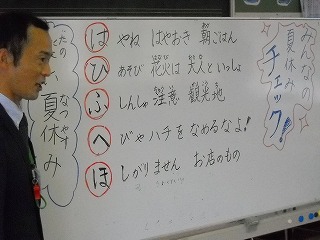 みんなの
夏休み
チェック!
の
夏休み
なつやすみ
はやね はやおき 朝ごはん
ひあそび 花火は 大人といっしょ
ふしんしゃ 注意 観光地
へびや ハチを なめるなよ!
ほしがりません お店のもの